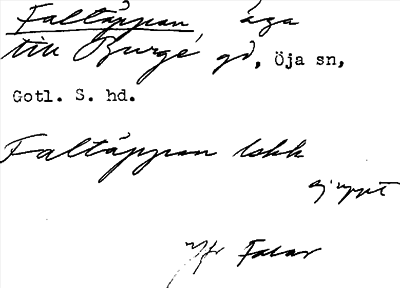 Faltäppan äga
till Burge gd, Öja sn,
Gotl. S. hd.
Faltäppan lokk
ej uppt
Jfr Falar